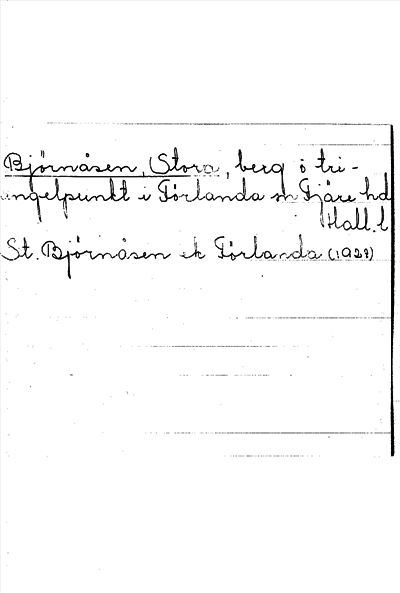 Björnåsen, Stora, berg o tri-
angelpunkt i Förlanda sn Fjäre hd
Hall. l
St. Björnåsen ek Förlanda (1927)